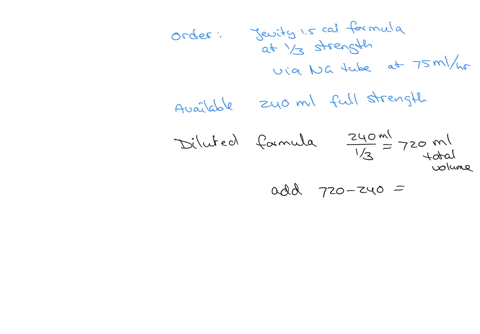 Order: Jevity 1.5 cal formula
at 1/3 strength
via NG tube at 75ml/hr
Available 240 ml full strength
Diluted formula 240 ml / 1/3 = 720 ml
total
volume
add 720-240 =